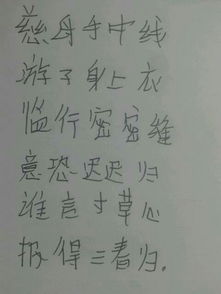 慈母手中线
游子身上衣
临行密密缝
意恐迟迟归
谁言寸草心
报得三春归.